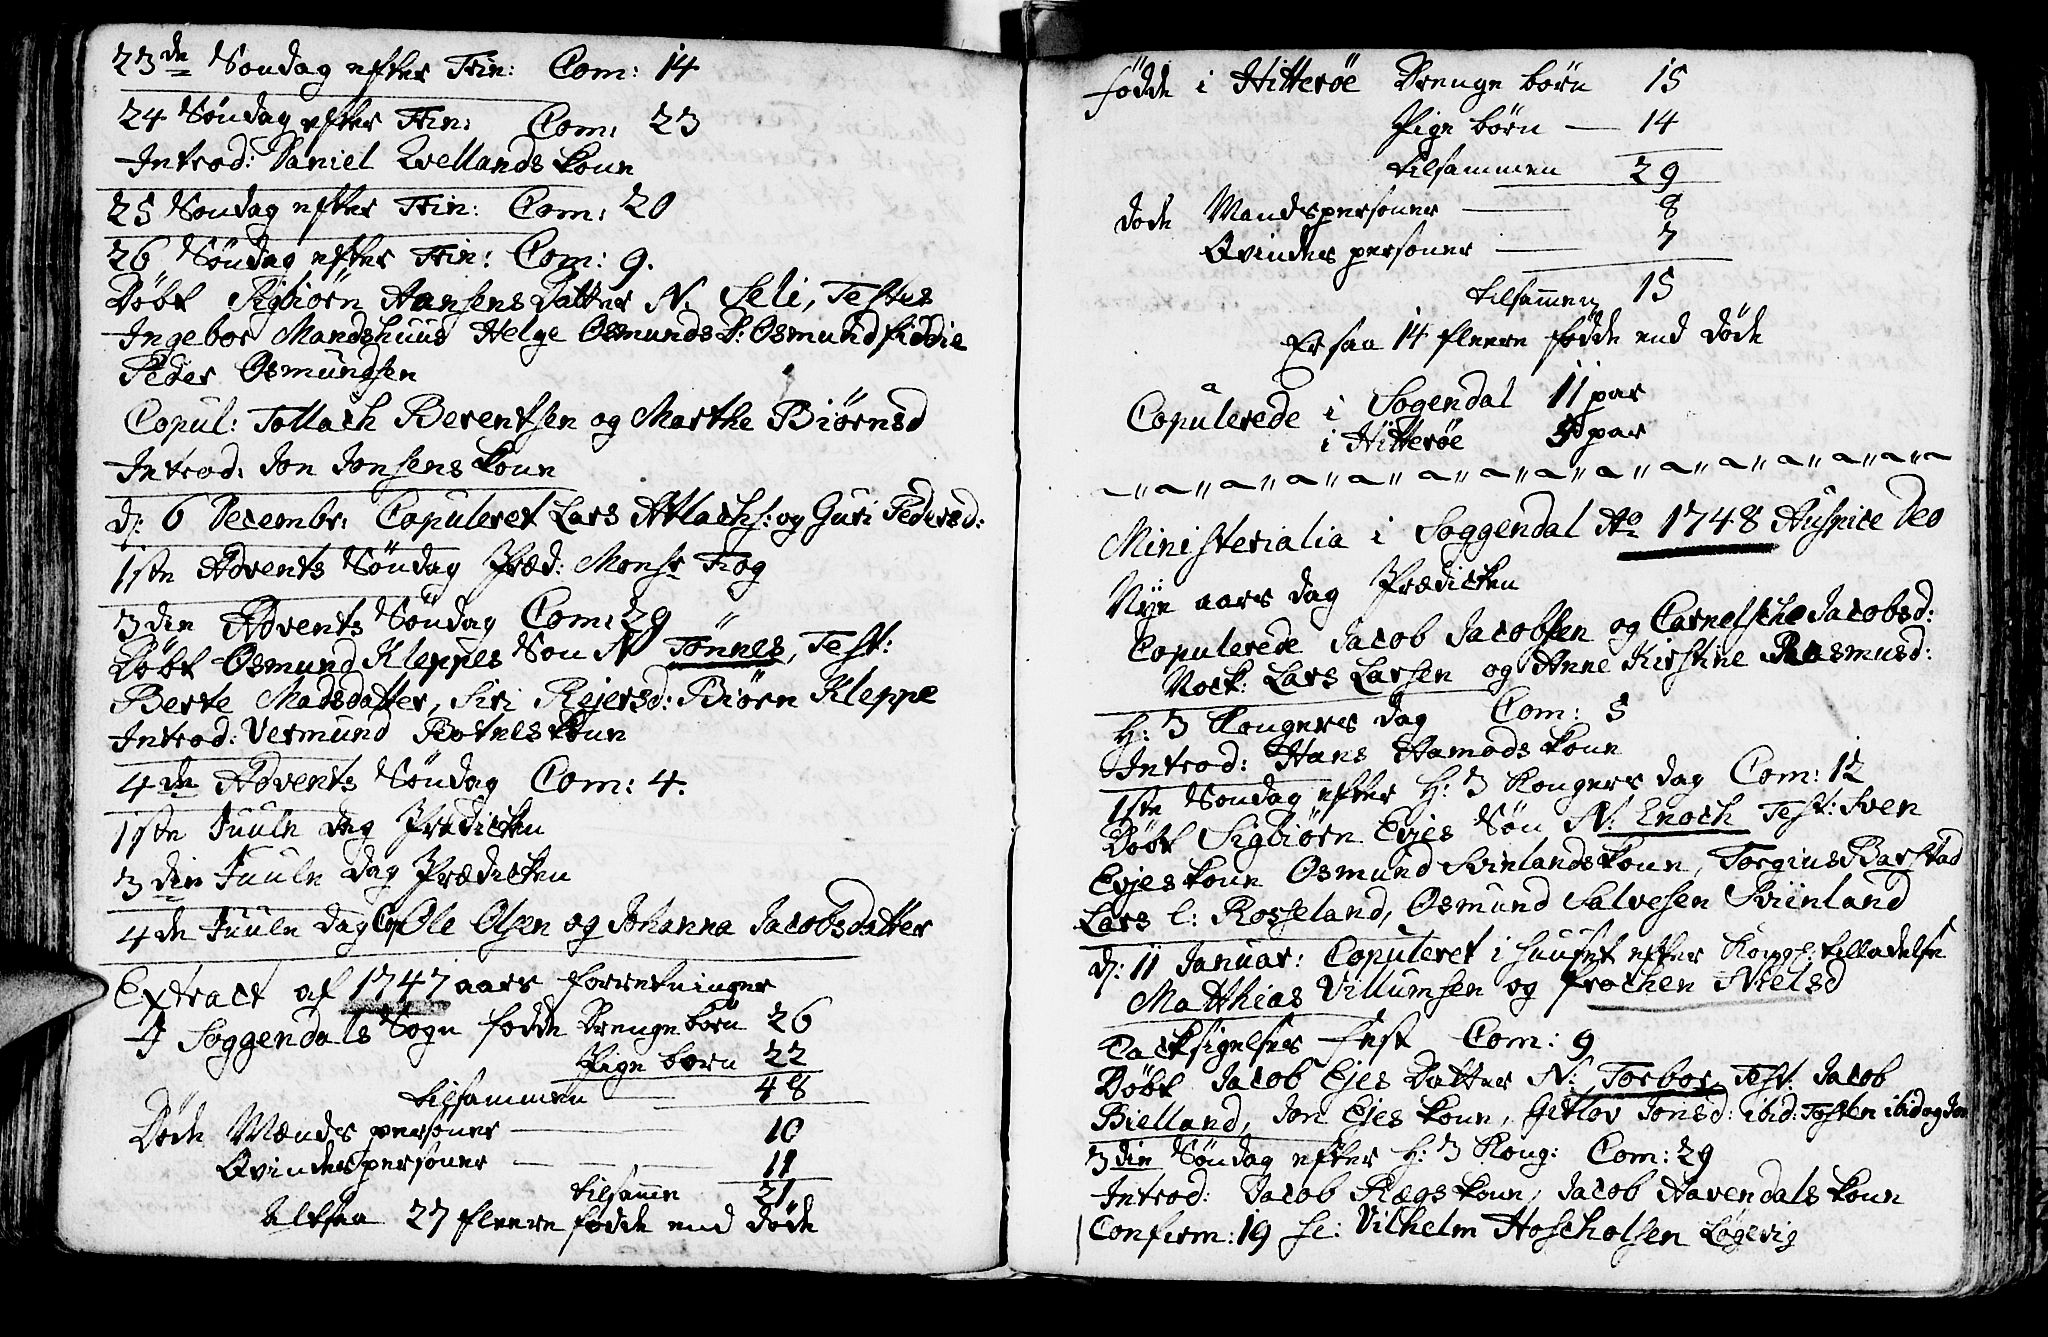 23de Søndag efter Trin: Com: 14
24 Søndag efter Trin: Com: 23
Introd: Daniel Qvellands Kone
25 Søndag efter Trin: Com: 20
26 Søndag efter Trin: Com: 9.
Døbt Sigbiørn Hansens Datter N. Seli, Testes
Ingebor Mandshuus Helge Osmunds D: Osmund fiddie
Peder Osmundsen
Copul: Tollach Berentsen og Marthe Biørnsd
Introd: Jon Jonsens Kone
d: 6 Decembr: Copuleret Lars Atlachs: og Guri Pedersd:
1ste Advents Søndag Præd: Monsr Fog
3die Advents Søndag Com: 29
Døbt Osmund Kleppes Søn N Tönnes, Test:
Berte Madsdatter, Siri Rejersd: Biørn Kleppe
Introd: Vermund Botnes Kone
4de Advents Søndag Com: 4.
1ste Juule dag Prædicken
3die Juule Dag Prædicken
4de Juule dag Cop Ole Olsen og Johanna Jacobsdatter
Extract af 1747 aars forretninger
I Soggendals Sogn fødde Drenge børn 26
Pige børn 22
tilsammen 48
Døde Mands personer 10
Qvindes personer 11
tilsamn 21
Altsaa 27 fleere fødde end døde
fødde i Hitterøe Drenge børn 15
Pige børn — 14
tilsammen 29
døde Mandspersoner 8
Qvindes personer 7
tilsammen 15
Er saa 14 fleere fødde end døde
Copulerede i Sogendal 11 par
i Hitterøe par
Ministerialia i Soggendal Ao 1748 Auspice Deo
Nye aars dag Prædicken
Copulerede Jacob Jacobsen og Carnelsche Jacobsd:
Nock: Lars Larsen og Anne Kirstine Rasmusd:
H: 3 Kongers dag Com: 5
Introd: Hans Aamods Kone
1ste Søndag efter H: 3 Kongers dag Com: 12
Døbt Sigbiørn Evjes Søn N: Enoch Test: Sven
Evjes Kone Osmund Svinlands Kone, Torgius Barstad
Lars l: Rosseland, Osmund Salvesen Sviinland
d: 11 Januar: Copuleret i huuset efter Kongs: tilladelse
Matthias Villumsen og frochen Nielsd
Tacksigelses fest Com: 9
Døbt Jacob Ejes Datter N: Torbor Test: Jacob
Bielland, Jon Ejes Kone, Getlov Jonsd: ibid: Tosten ibid og Jon
3die Søndag efter H: 3 Kong: Com: 29
Introd: Jacob Rægs Kone, Jacob Aavendals Kone
Confirm: 19 sc: Vilhelm Hoscholsen Løgevig